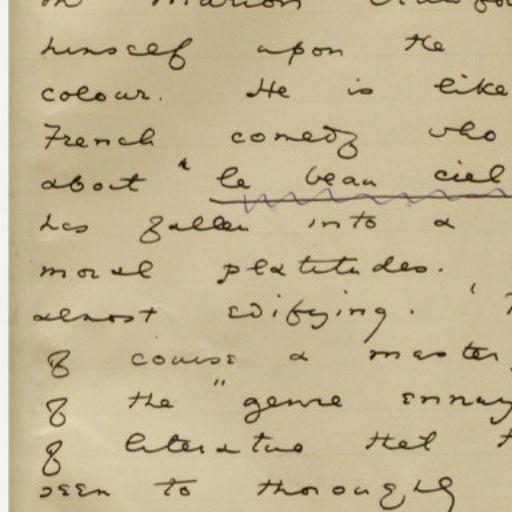 himself upon the
colour. He is like
French comedy who
about "le beau ciel
has fallen into a
moral platitudes.
almost edifying.
of course a master
of the "genre ennuy
of literature that
seem to thoroughly